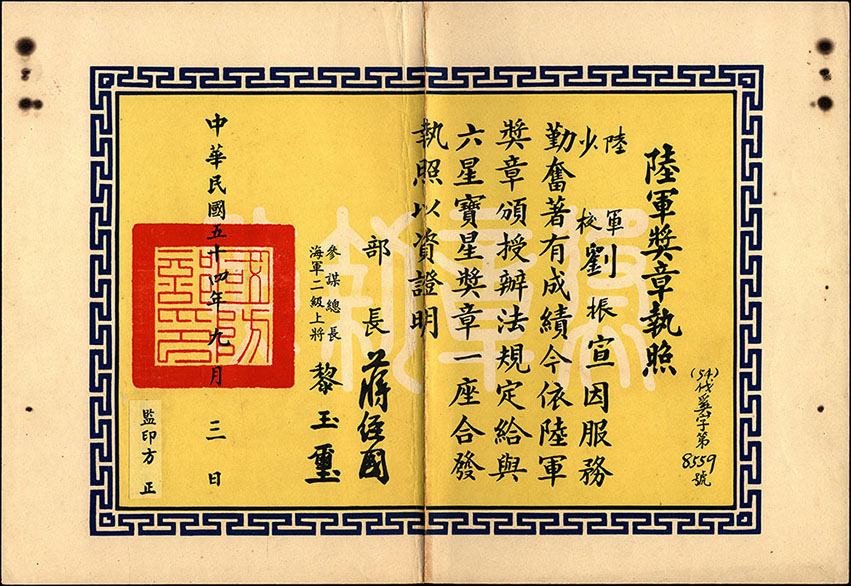 陸軍獎章執照
(54)伐奚字第8559號
陸軍少校劉振宣因服務
勤奮著有成績今依陸軍
獎章頒授辦法規定給與
六星寶星獎章一座合發
執照以資證明
部長蔣經國
參謀總長
海軍二級上將
黎玉璽
中華民國五十四年九月三日
國防部印
監印方正